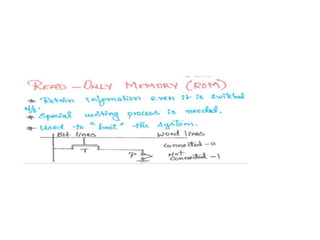 READ-ONLY MEMORY (ROM)
* Retain information even it is switched
off.
* Special writing process is needed.
* Used to "boot" the system.
Bit lines Word lines
Connected - 0
T P Not
Connected - 1